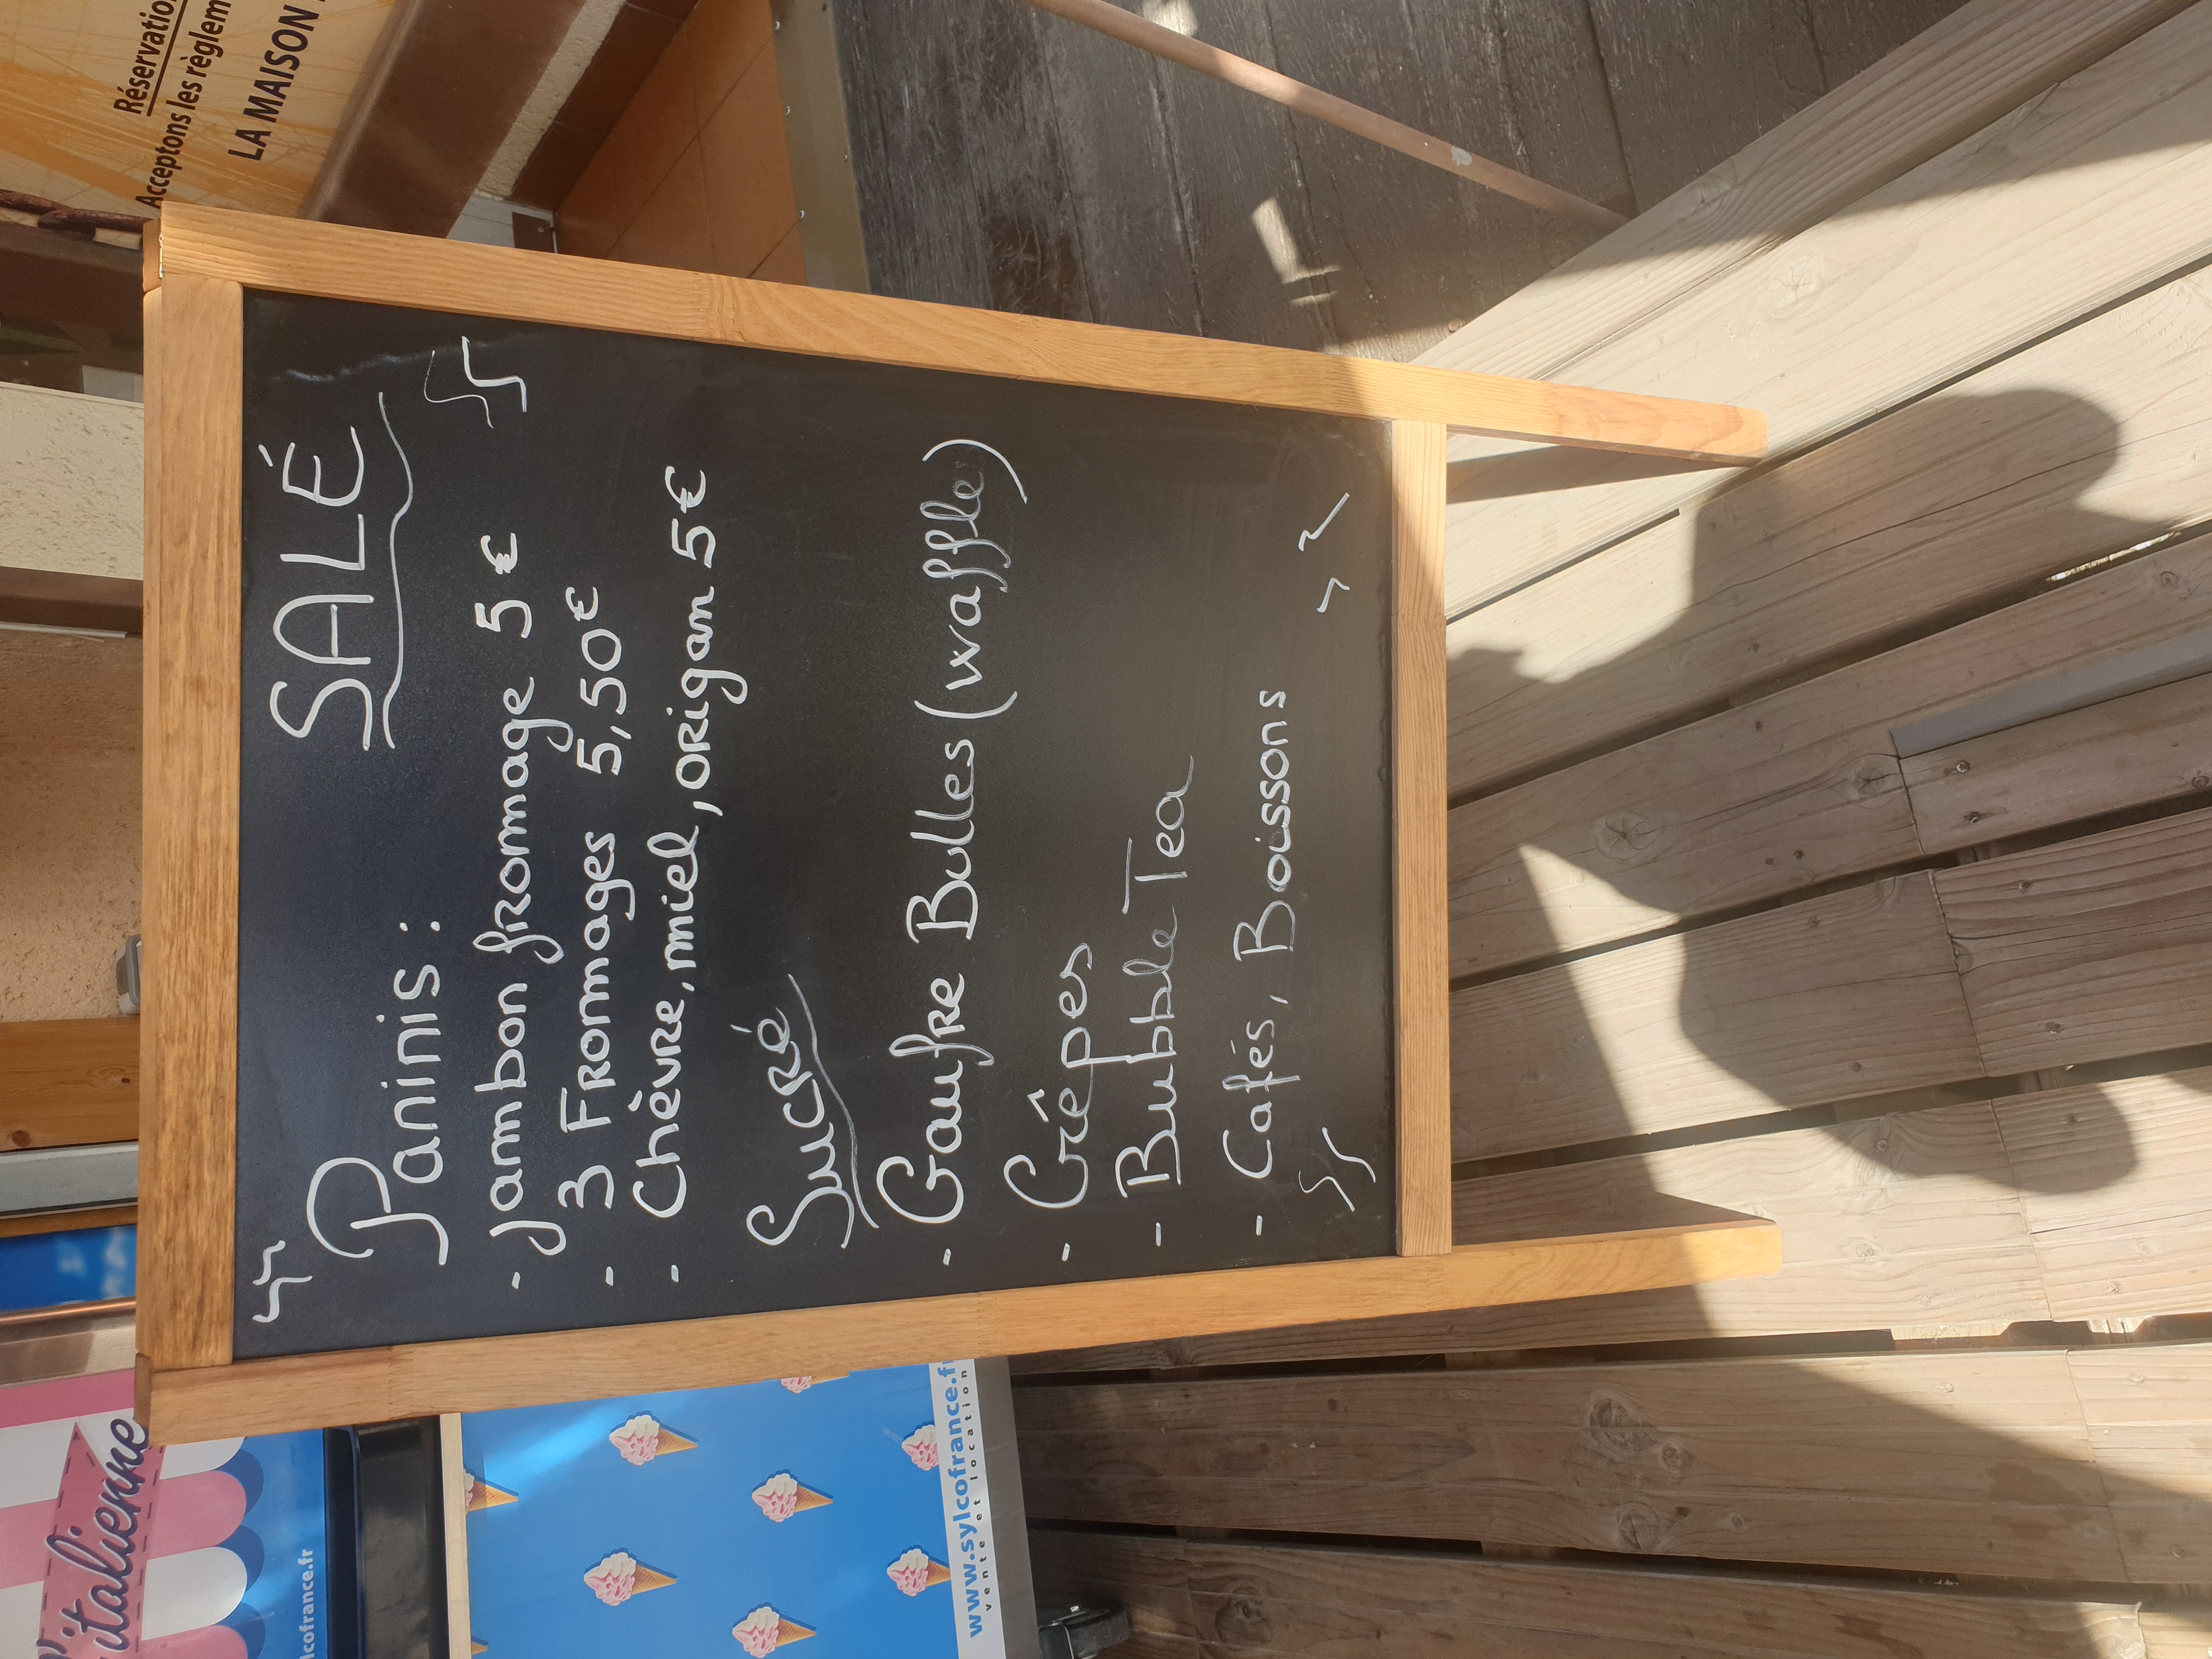 SALÉ
Paninis :
- Jambon fromage 5 €
- 3 Fromages 5,50€
- Chèvre, miel, origan 5€
Sucré
- Gaufre Bulles (waffle)
- Crêpes
- Bubble Tea
- Cafés, Boissons
Réservation
Acceptons les règlem
LA MAISON
l'italienne
ncofrance.fr
www.sylcofrance.fr
vente et location